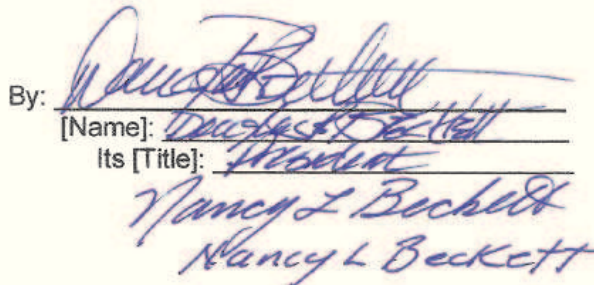 By: Douglas Beckett
[Name]: Douglas Beckett
Its [Title]: President
Nancy L Beckett
Nancy L Beckett